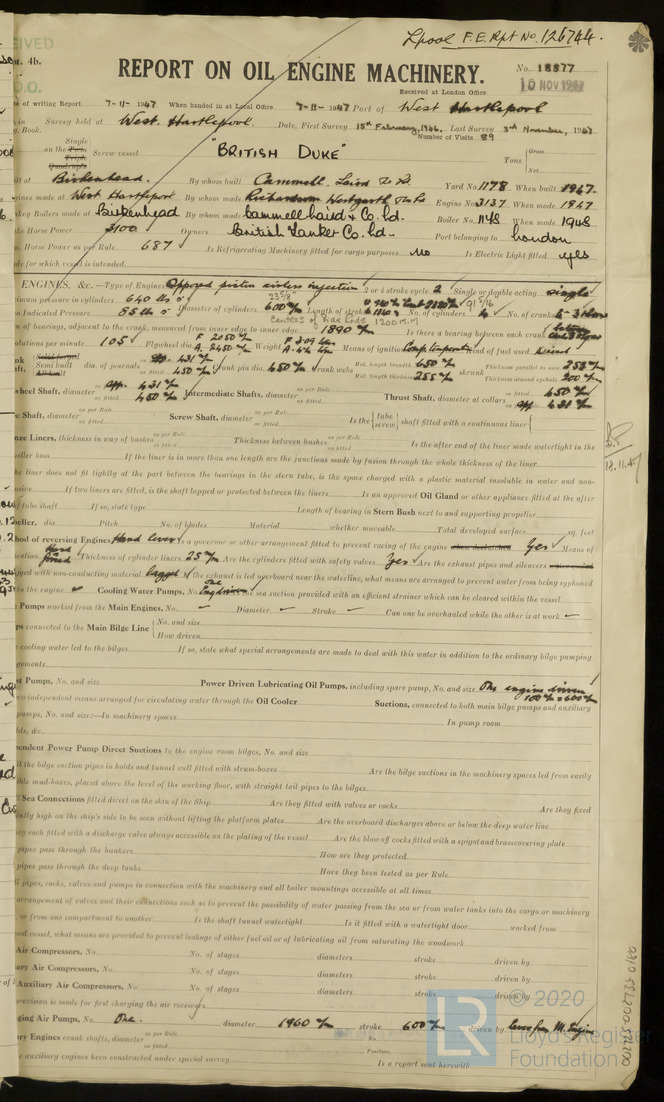 Lpool F.E. Rpt No. 126744.
Rpt. 4b.
REPORT ON OIL ENGINE MACHINERY.
No. 18577
10 NOV 1947
Received at London Office
of writing Report 7-11-1947 When handed in at Local Office 7-11-1947 Port of West Hartlepool
Survey held at West Hartlepool Date, First Survey 15th February, 1946. Last Survey 3rd November, 1947
Book. Number of Visits 89
Single
on the Twin Screw vessel
Triple
Quadruple
"BRITISH DUKE"
Tons Gross
Net
Birkenhead. By whom built Cammell Laird & Co Yard No. 1178 When built 1947
made at West Hartlepool By whom made Richardsons Westgarth Engine No. 3137 When made 1947
Boilers made at Birkenhead By whom made Cammell Laird & Co. Ld. Boiler No. 1178 When made 1948
Horse Power 3100 Owners British Tanker Co. Ld. Port belonging to London
Horse Power as per Rule 687 Is Refrigerating Machinery fitted for cargo purposes No Is Electric Light fitted yes
for which vessel is intended
ENGINES, &c.—Type of Engines Opposed piston airless injection 2 or 4 stroke cycle 2 Single or double acting single
pressure in cylinders 640 lbs Diameter of cylinders 600 m/m Length of stroke No. of cylinders 4 No. of cranks
Indicated Pressure 85 lbs 23 5/8 91 5/16
centres of 1200 m.m
of bearings, adjacent to the crank, measured from inner edge to inner edge 1890 m/m Is there a bearing between each crank
per minute 105 Flywheel dia. F 2050 m/m A. 2450 m/m Weight Means of ignition Comp. temperature Kind of fuel used Diesel
Solid forged
Semi built
All built
dia. of journals as per Rule app. 431 m/m as fitted 450 m/m Crank pin dia. 450 m/m Crank webs Mid. length breadth 650 m/m Mid. length thickness 255 m/m shrunk Thickness parallel to axis 255 m/m Thickness around eyehole 200 m/m
Shaft, diameter as per Rule app. 431 m/m as fitted 450 m/m Intermediate Shafts, diameter as per Rule as fitted Thrust Shaft, diameter at collars as fitted 450 m/m app. 431 m/m
Shaft, diameter as per Rule as fitted Screw Shaft, diameter as per Rule as fitted Is the tube screw shaft fitted with a continuous liner
Liners, thickness in way of bushes as per Rule as fitted Thickness between bushes as per Rule as fitted Is the after end of the liner made watertight in the
boss If the liner is in more than one length are the junctions made by fusion through the whole thickness of the liner
liner does not fit tightly at the part between the bearings in the stern tube, is the space charged with a plastic material insoluble in water and non-
If two liners are fitted, is the shaft lapped or protected between the liners Is an approved Oil Gland or other appliance fitted at the after
tube shaft If so, state type Length of bearing in Stern Bush next to and supporting propeller
dia. Pitch No. of blades Material whether moveable Total developed surface sq. feet
of reversing Engines Hand lever Is a governor or other arrangement fitted to prevent racing of the engine Yes Means of
Forced Thickness of cylinder liners 25 m/m Are the cylinders fitted with safety valves Yes Are the exhaust pipes and silencers
with non-conducting material lagged If the exhaust is led overboard near the waterline, what means are arranged to prevent water from being syphoned
to the engine Cooling Water Pumps, No. One Eng. driven Is the sea suction provided with an efficient strainer which can be cleared within the vessel
Pumps worked from the Main Engines, No. Diameter Stroke Can one be overhauled while the other is at work
connected to the Main Bilge Line No. and size
How driven
cooling water led to the bilges If so, state what special arrangements are made to deal with this water in addition to the ordinary bilge pumping
Pumps, No. and size Power Driven Lubricating Oil Pumps, including spare pump, No. and size One engine driven
independent means arranged for circulating water through the Oil Cooler Suctions, connected to both main bilge pumps and auxiliary
pumps, No. and size:—In machinery spaces In pump room
&c.
Power Pump Direct Suctions to the engine room bilges, No. and size
the bilge suction pipes in holds and tunnel well fitted with strum-boxes Are the bilge suctions in the machinery spaces led from easily
mud-boxes, placed above the level of the working floor, with straight tail pipes to the bilges
Sea Connections fitted direct on the skin of the Ship Are they fitted with valves or cocks Are they fixed
high on the ship's side to be seen without lifting the platform plates Are the overboard discharges above or below the deep water line
each fitted with a discharge valve always accessible on the plating of the vessel Are the blow off cocks fitted with a spigot and brass covering plate
pipes pass through the bunkers How are they protected
pipes pass through the deep tanks Have they been tested as per Rule
pipes, cocks, valves and pumps in connection with the machinery and all boiler mountings accessible at all times
arrangement of valves and their connections such as to prevent the possibility of water passing from the sea or from water tanks into the cargo or machinery
or from one compartment to another Is the shaft tunnel watertight Is it fitted with a watertight door worked from
vessel, what means are provided to prevent leakage of either fuel oil or of lubricating oil from saturating the woodwork
Air Compressors, No. No. of stages diameters stroke driven by
Air Compressors, No. No. of stages diameters stroke driven by
Auxiliary Air Compressors, No. No. of stages diameters stroke driven by
provision is made for first charging the air receivers
Air Pumps, No. One. diameter 1960 m/m stroke 600 m/m driven by levers from M. Engine
Engines crank shafts, diameter as per Rule as fitted No. Position
auxiliary engines been constructed under special survey Is a report sent herewith
18.11.47
002725-002733-0180
LR
© 2020
Lloyd's Register
Foundation